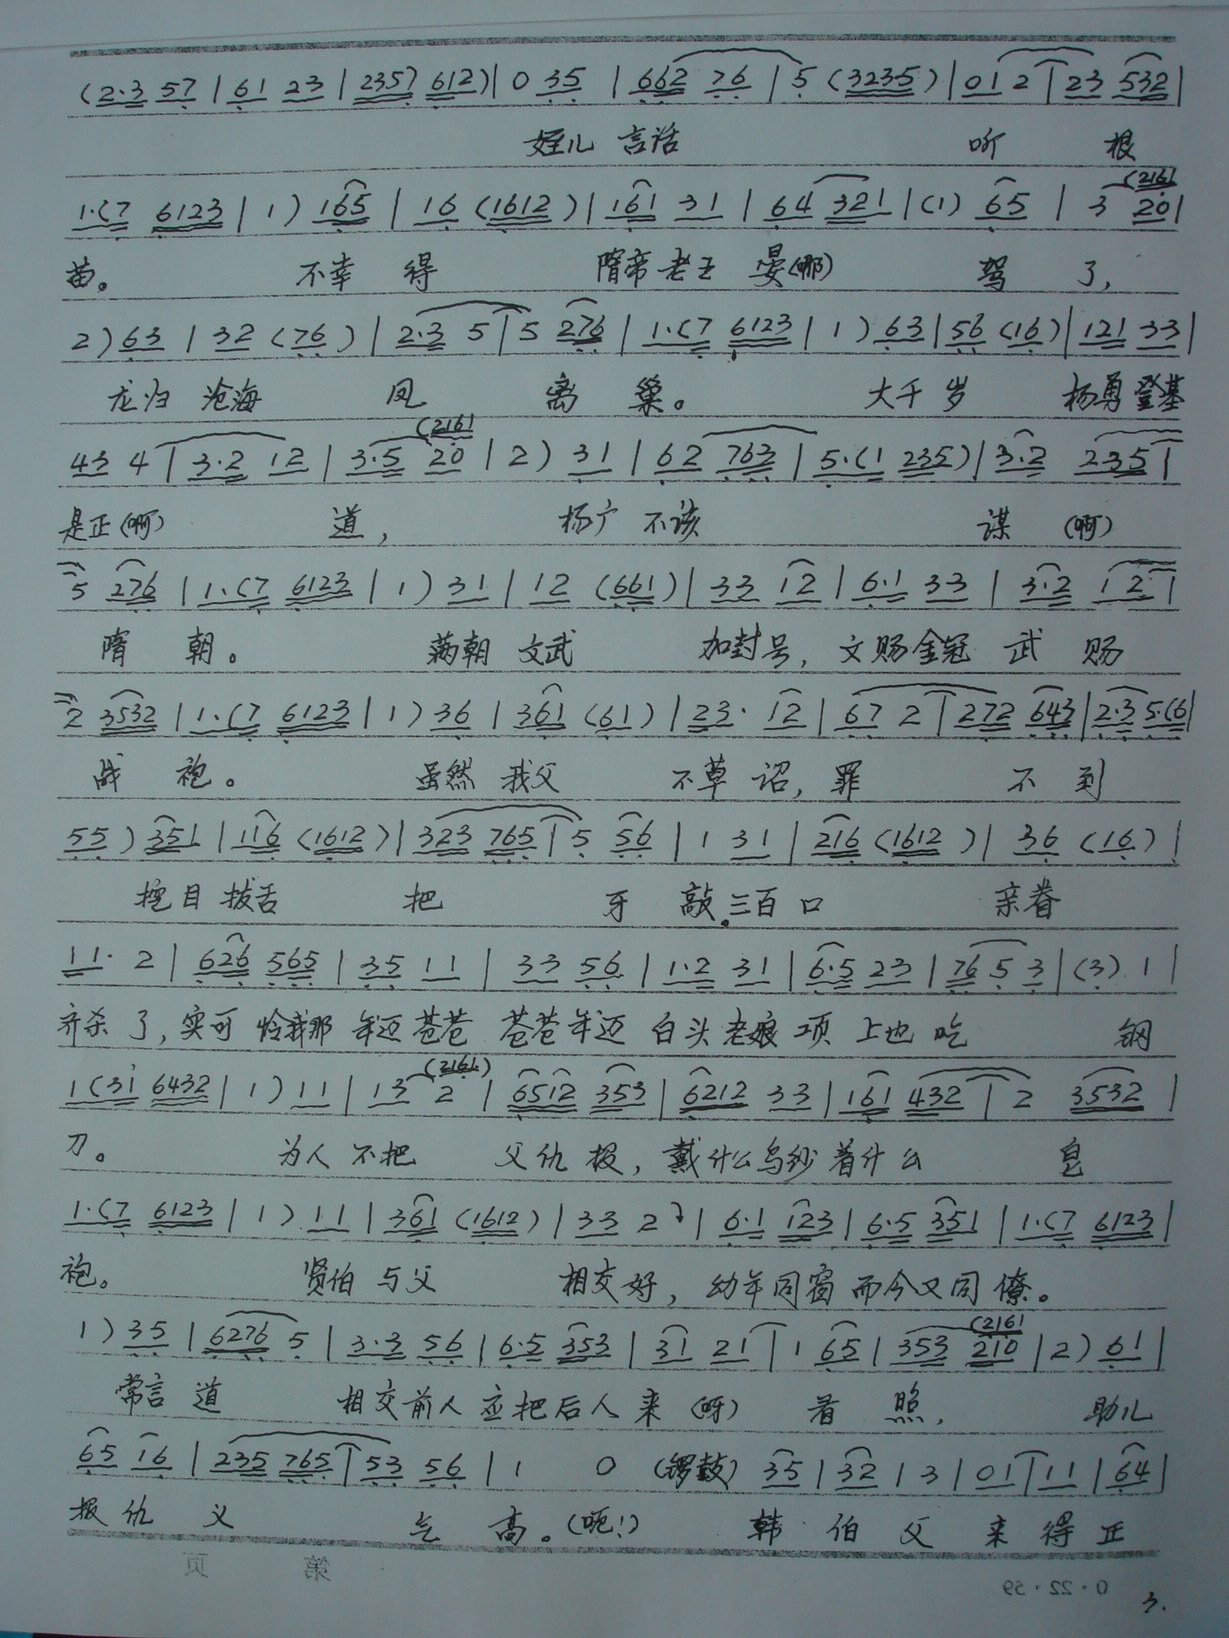 (2·3 57 | 61 23 | 2357 612) | 0 35 | 662 76 | 5 (3235) | 01 2 | 23 532 |
姪儿 言话 听 根
1·(7 6123 | 1) 165 | 16 (1612) | 161 31 | 64 321 | (1) 65 | 3 20 (2161 |
苗。 不幸 得 隋帝老王 晏(哪) 驾 了,
2) 63 | 32 (76) | 2·3 5 | 5 276 | 1·(7 6123 | 1) 63 | 56 (16) | 121 33 |
龙归 沧海 凤 离 巢。 大千岁 杨勇登基
43 4 | 3·2 12 | 3·5 20 (2161 | 2) 31 | 62 763 | 5·(1 235) | 3·2 235 |
是正(啊) 道, 杨广 不该 谋 (啊)
5 276 | 1·(7 6123 | 1) 31 | 12 (661) | 33 12 | 6·1 33 | 3·2 12 |
隋 朝。 满朝 文武 加封号, 文赐金冠 武 赐
2 3532 | 1·(7 6123 | 1) 36 | 361 (61) | 23· 12 | 67 2 | 272 643 | 2·3 5·(6 |
战 袍。 虽然 我父 不草 诏, 罪 不 到
55) 351 | 116 (1612) | 323 765 | 5 56 | 1 31 | 216 (1612) | 36 (16) |
挖目 拔舌 把 牙 敲。三百 口 亲眷
11· 2 | 626 565 | 35 11 | 33 56 | 1·2 31 | 6·5 23 | 76 5 3 | (3) 1 |
齐杀 了, 实可 怜我那 年迈 苍苍 苍苍年迈 白头 老娘 项 上也 吃 钢
1 (31 6432 | 1) 11 | 13 2 (2161) | 6512 353 | 6212 33 | 161 432 | 2 3532 |
刀。 为人 不把 父仇 报, 戴什么乌纱着什么 皂
1·(7 6123 | 1) 11 | 361 (1612) | 33 2 | 6·1 123 | 6·5 351 | 1·(7 6123 |
袍。 贤伯 与父 相交好, 幼年同窗 而今又同 僚。
1) 35 | 6276 5 | 3·3 56 | 6·5 353 | 31 21 | 1 65 | 353 210 (2161 | 2) 61 |
常言 道 相交前人 应把后人 来 (呀) 着 照, 助儿
65 16 | 235 765 | 53 56 | 1 0 (锣鼓) 35 | 32 | 3 | 01 | 11 | 64 |
报仇 义 气 高。(呃!) 韩 伯 父 来 得 正
第 页
0·22·59
3.